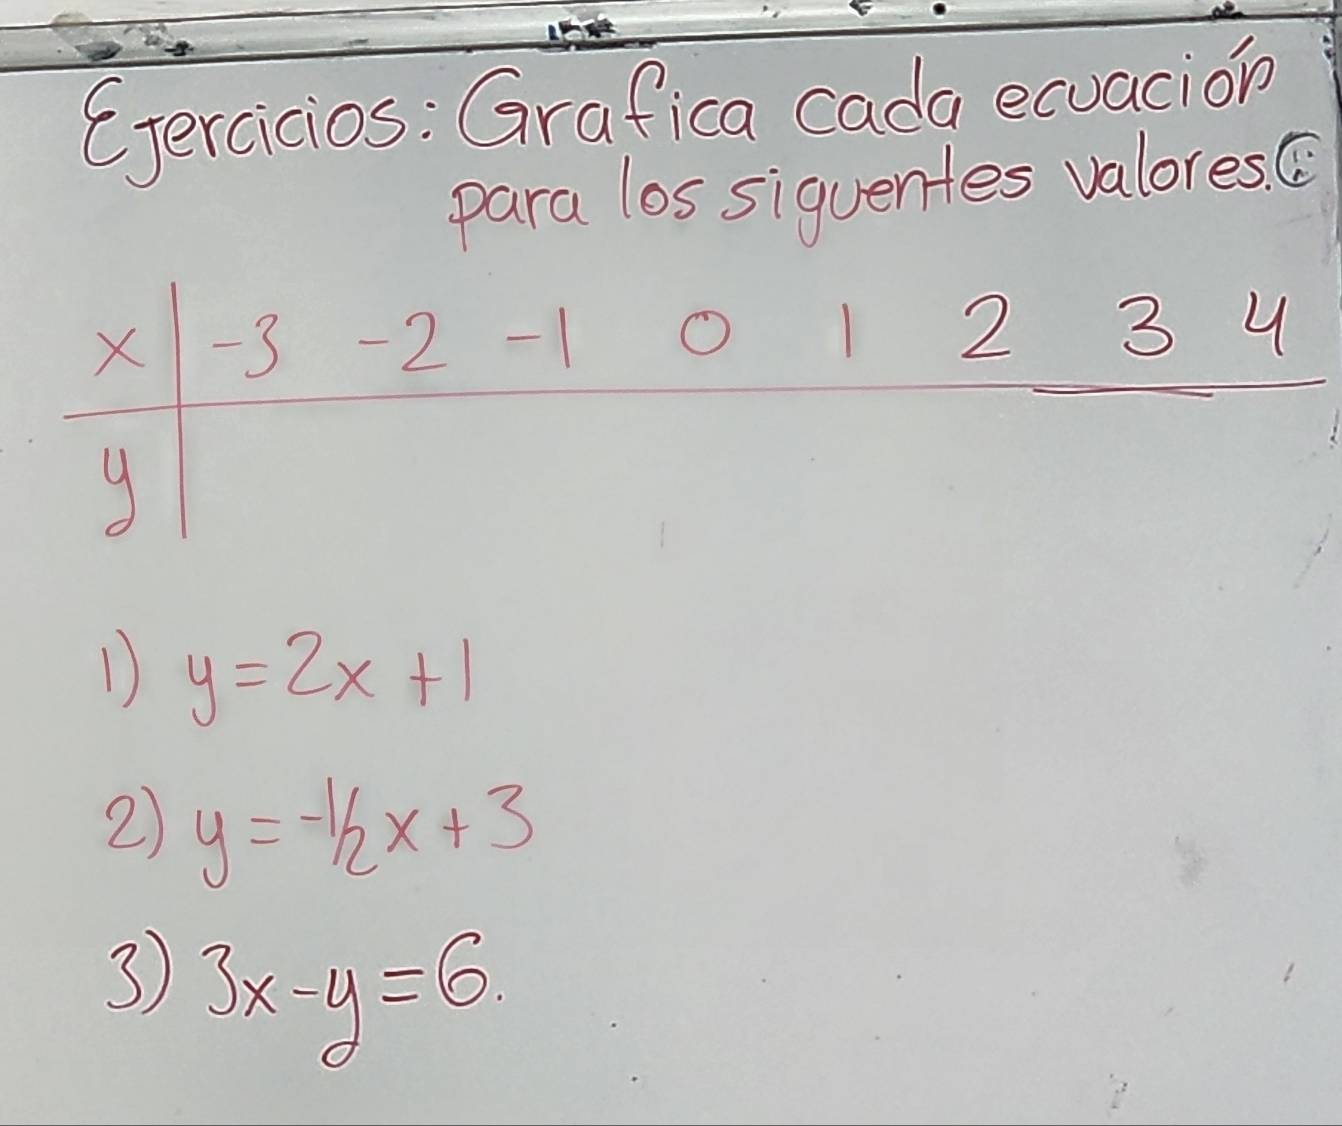 Ejercicios: Grafica cada ecuación
para los siguentes valores.
x | -3 -2 -1 0 1 2 3 4
y |
1) y = 2x + 1
2) y = -1/2 x + 3
3) 3x - y = 6.